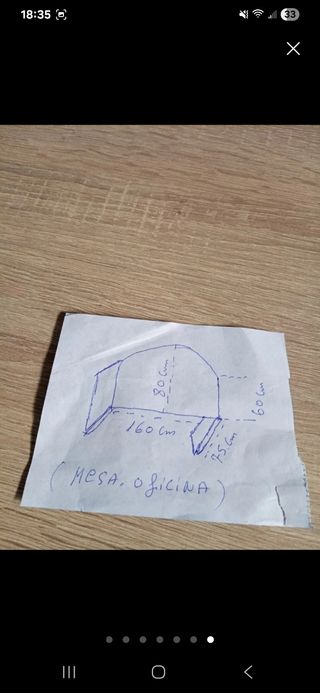 18:35
33
80 cm
160 cm
60 cm
75 cm
(MESA. OFICINA)